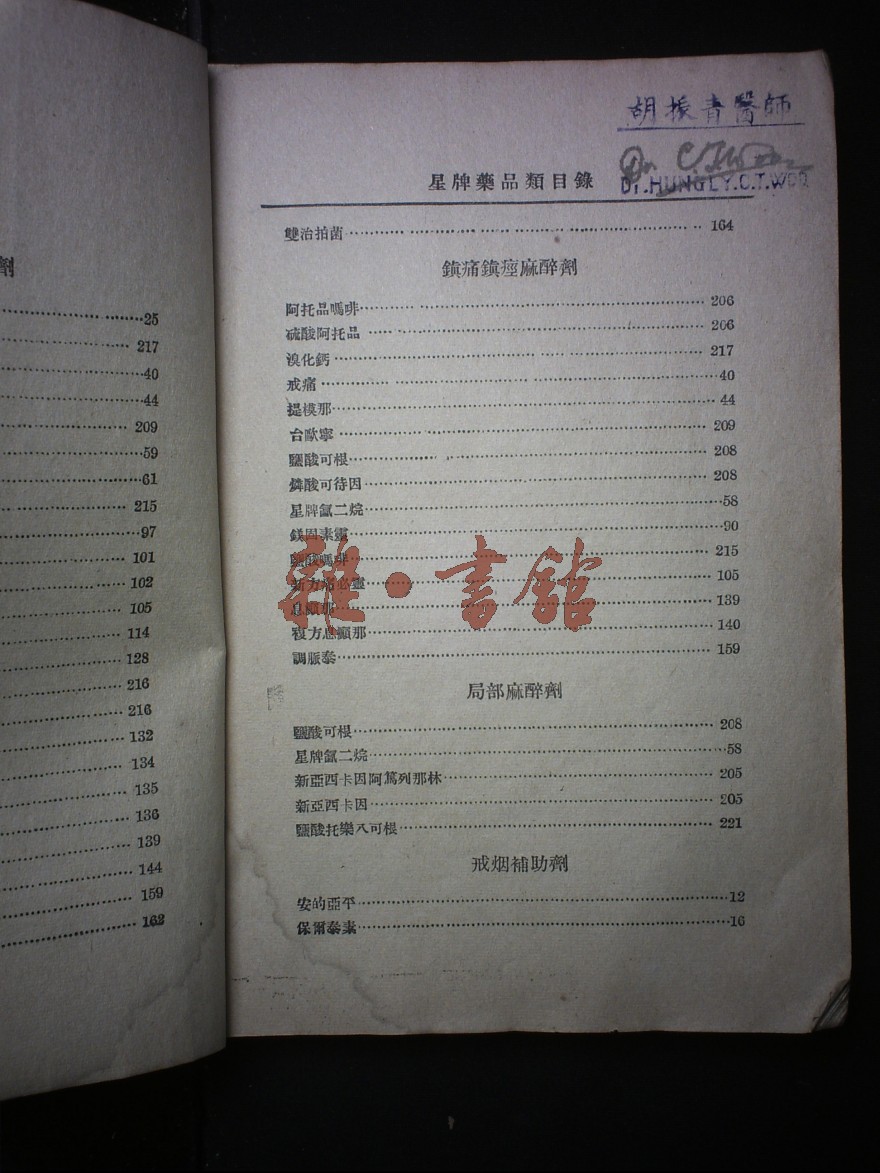 劑
25
217
40
44
209
59
61
215
97
101
102
105
114
128
216
216
132
134
135
136
139
144
159
163
胡振青醫師
Dr.
Dr.HUNGLY.C.T.WOO
星牌藥品類目錄
雙治拍菌 164
鎮痛鎮痙麻醉劑
阿托品嗎啡 206
硫酸阿托品 206
溴化鈣 217
戒痛 40
提模那 44
台歐寧 209
鹽酸可根 208
燐酸可待因 208
星牌氯二烷 58
鎂固素靈 90
鹽酸嗎啡 215
新方痛必靈 105
息癲那 139
複方息癲那 140
調脈泰 159
雜·書館
局部麻醉劑
鹽酸可根 208
星牌氯二烷 58
新亞西卡因阿篤列那林 205
新亞西卡因 205
鹽酸托樂八可根 221
戒烟補助劑
安的亞平 12
保爾泰素 16